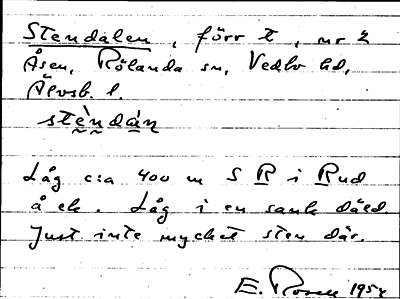 Stendalen, förr t, nr 2
Åsen, Rölanda sn, Vedbo hd,
Älvsb. l.
stèndán
Låg c:a 400 m S R i Rud
å ek. Låg i en sank däld.
Just inte mycket sten där.
E. Rosell 1954